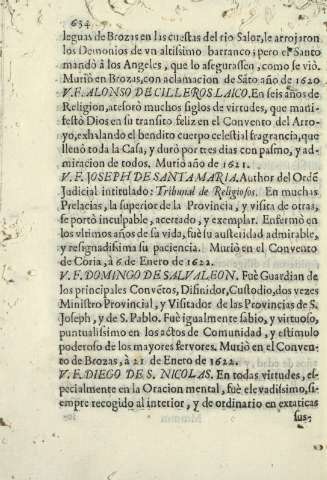 634
leguas de Brozas en las cuestas del rio Salor, le arrojaron
los Demonios de vn altissimo barranco; pero el Santo
mandò à los Angeles, que lo assegurassen, como se viò.
Murió en Brozas, con aclamacion de Sãto año de 1620
V. F. ALONSO DE CILLEROS LAICO. En seis años de
Religion, atesorò muchos siglos de virtudes, que mani-
festò Dios en su transito feliz en el Convento del Arro-
yo, exhalando el bendito cuerpo celestial fragrancia, que
llenò toda la Casa, y durò por tres dias con pasmo, y ad-
miracion de todos. Murió año de 1621.
V. F. JOSEPH DE SANTA MARIA. Author del Ordẽ
Judicial intitulado: Tribunal de Religiosos. En muchas
Prelacias, la superior de la Provincia, y visita de otras,
se portò inculpable, acertado, y exemplar. Enfermò en
los vltimos años de su vida, fuè su austeridad admirable,
y resignadissima su paciencia. Murió en el Convento
de Coria, à 6 de Enero de 1622.
V. F. DOMINGO DE SALVALEON. Fuè Guardian de
los principales Convẽtos, Difinidor, Custodio, dos vezes
Ministro Provincial, y Visitador de las Provincias de S.
Joseph, y de S. Pablo. Fuè igualmente sabio, y virtuoso,
puntualissimo en los actos de Comunidad, y estimulo
poderoso de los mayores fervores. Murió en el Conven-
to de Brozas, à 21 de Enero de 1622.
V. F. DIEGO DE S. NICOLAS. En todas virtudes, es-
pecialmente en la Oracion mental, fuè elevadissimo, si-
empre recogido al interior, y de ordinario en extaticas
sus-